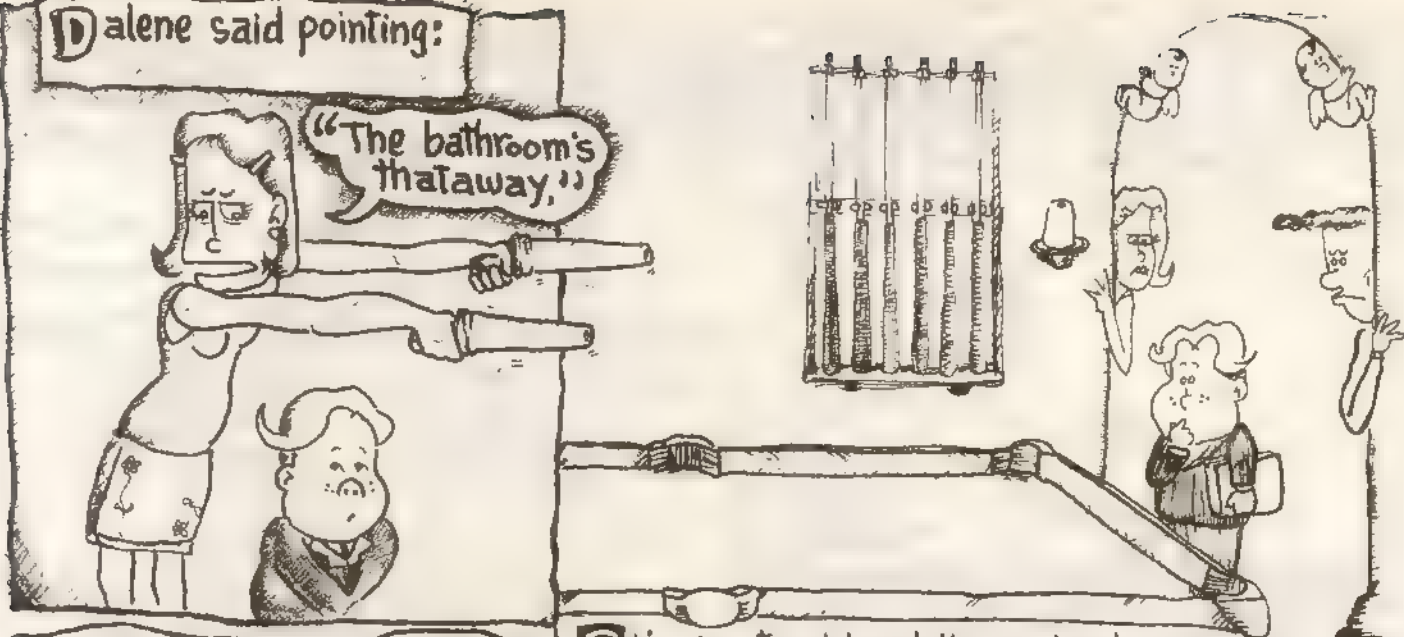 Dalene said pointing:
“The bathroom's
thataway,”